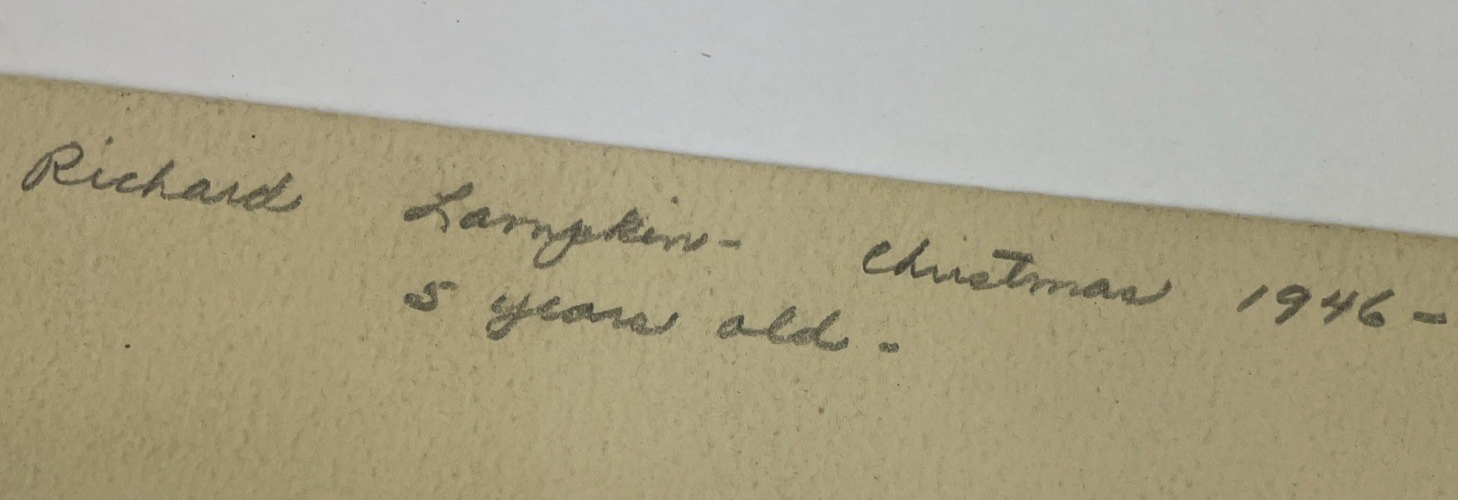 Richard Lampkin- Christmas 1946-
5 years old-